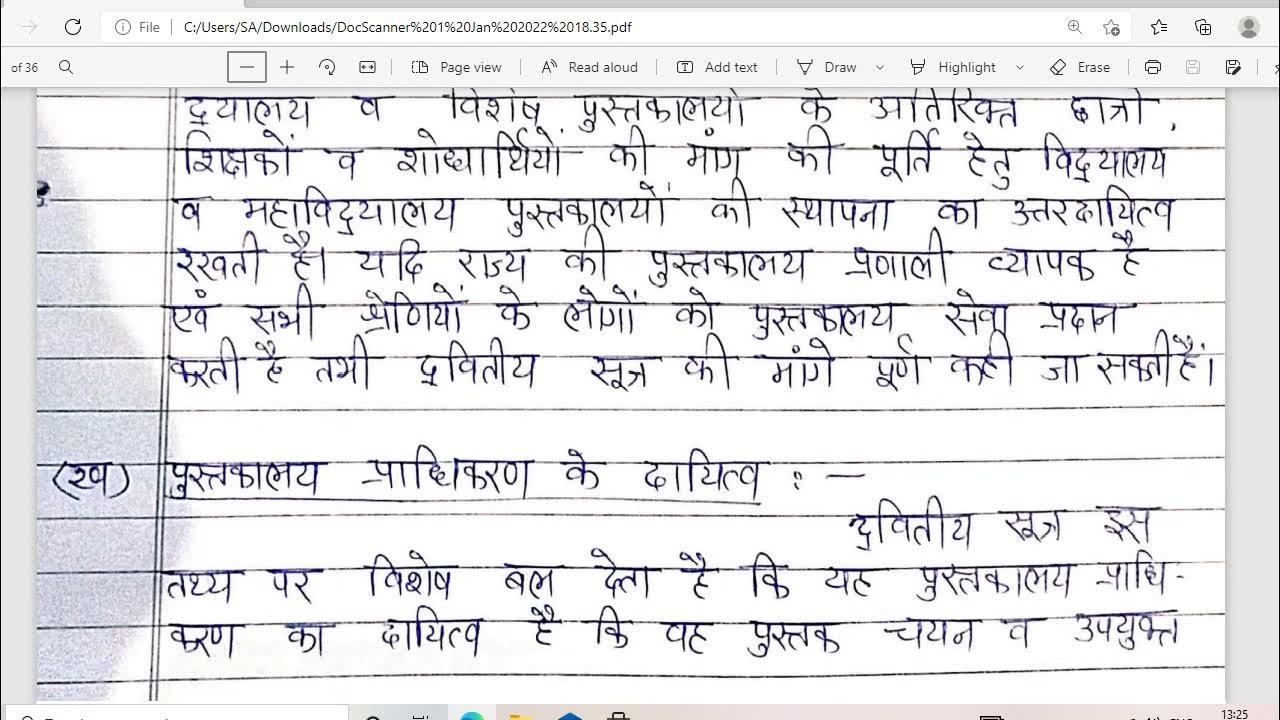 File C:/Users/SA/Downloads/DocScanner%201%20Jan%202022%2018.35.pdf
of 36 Page view Read aloud Add text Draw Highlight Erase
द्यालय व विशेष पुस्तकालयों के अतिरिक्त छात्रों,
शिक्षकों व शोधार्थियों की मांग की पूर्ति हेतु विद्यालय
व महाविद्यालय पुस्तकालयों की स्थापना का उत्तरदायित्व
रखती है। यदि राज्य की पुस्तकालय प्रणाली व्यापक है
एवं सभी श्रेणियों के लोगों को पुस्तकालय सेवा प्रदान
करती है तभी द्वितीय सूत्र की मांगे पूर्ण कही जा सकती हैं।
(ख) पुस्तकालय प्राधिकरण के दायित्व : —
द्वितीय सूत्र इस
तथ्य पर विशेष बल देता है कि यह पुस्तकालय प्राधि-
करण का दायित्व है कि वह पुस्तक चयन व उपयुक्त
13:25